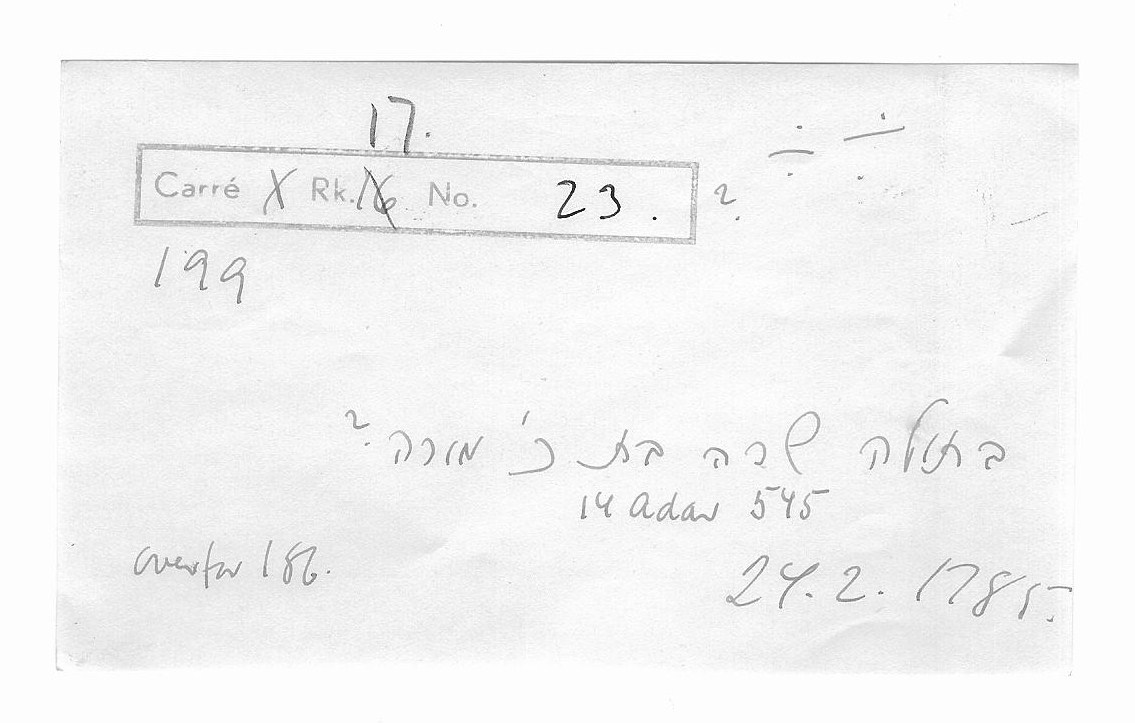 17.
Carré X Rk. 16 No. 23. ?
199
בתולה שרה בת כ' מורה ?
14 Adar 545
overfor 186.
24.2.1785.